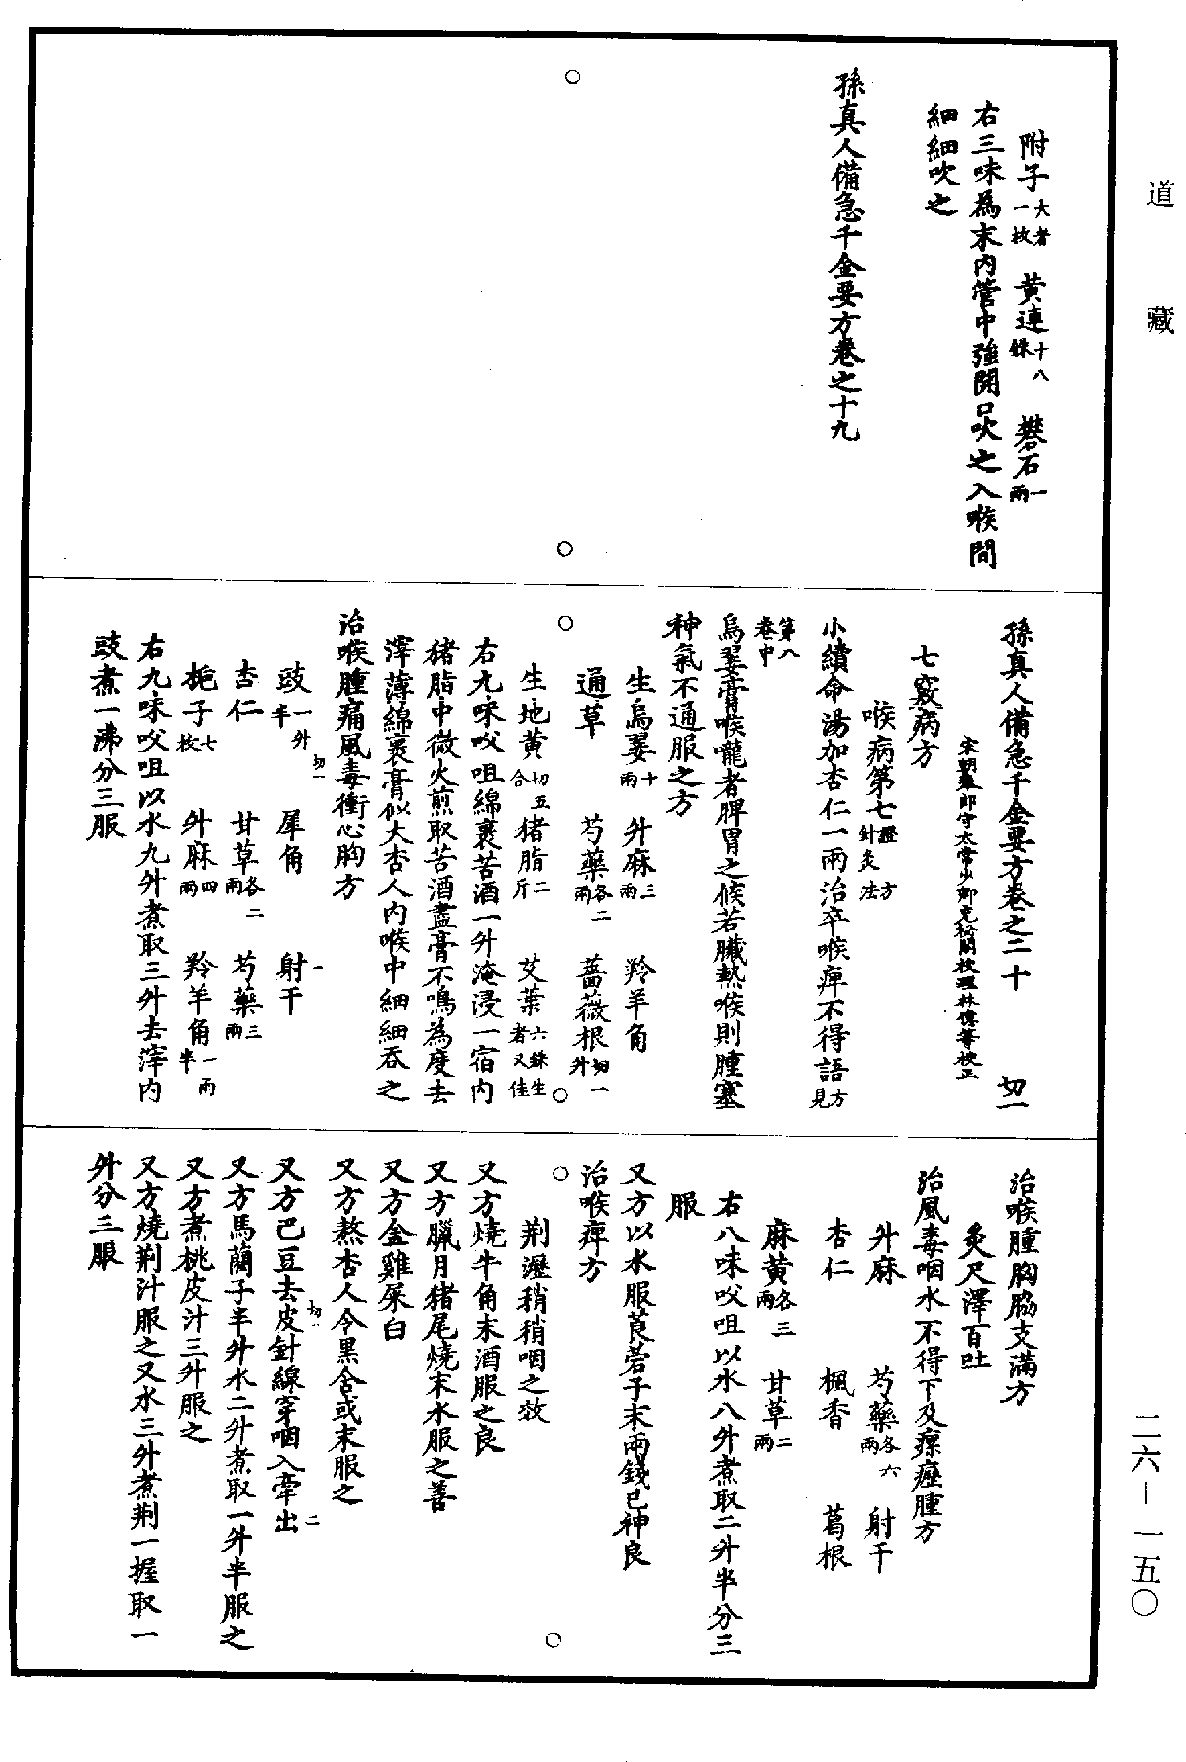 道藏
附子大者一枚 黃連十八銖 礬石一兩
右三味為末內管中強開口吹之入喉間
細細吹之
孫真人備急千金要方卷之十九
孫真人備急千金要方卷之二十 切一
宋朝奉郎守太常少卿充秘閣校理林億等校正
七竅病方
喉病第七證 方 針灸法
小續命湯加杏仁一兩治卒喉痺不得語方見
第八卷中
烏翣膏喉嚨者脾胃之候若臟熱喉則腫塞
神氣不通服之方
生烏翣十兩 升麻三兩 羚羊角
通草 芍藥各二兩 薔薇根切一升
生地黃切五合 猪脂二斤 艾葉六銖生者又佳
右九味㕮咀綿裹苦酒一升淹浸一宿內
猪脂中微火煎取苦酒盡膏不鳴為度去
滓薄綿裹膏似大杏人內喉中細細吞之
治喉腫痛風毒衝心胸方
豉一升半 犀角 射干
切一 一
杏仁 甘草各二兩 芍藥三兩
梔子七枚 升麻四兩 羚羊角一兩半
右九味㕮咀以水九升煮取三升去滓內
豉煮一沸分三服
治喉腫胸脇支滿方
灸尺澤百吐
治風毒咽水不得下及瘰癧腫方
升麻 芍藥各六兩 射干
杏仁 楓香 葛根
麻黃各三兩 甘草二兩
右八味㕮咀以水八升煮取二升半分三
服
又方以水服莨菪子末兩錢已神良
治喉痺方
荆瀝稍稍咽之效
又方燒牛角末酒服之良
又方臘月猪尾燒末水服之善
又方金雞屎白
又方熬杏人令黑含或末服之
又方巴豆去皮針線穿咽入牽出
切一 二
又方馬藺子半升水二升煮取一升半服之
又方煮桃皮汁三升服之
又方燒荆汁服之又水三升煮荆一握取一
升分三服
二六—一五〇